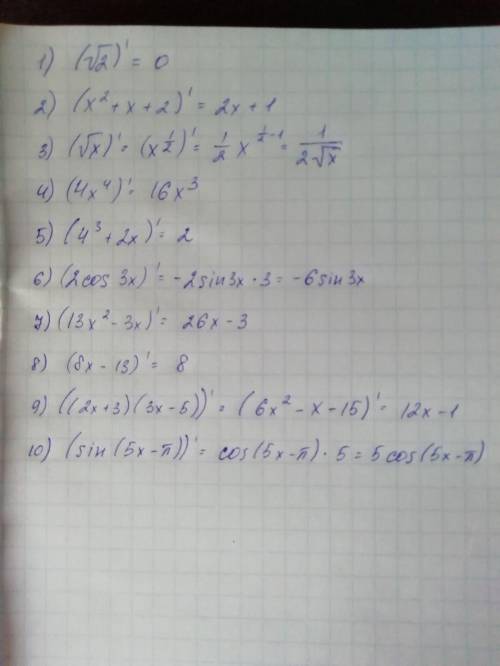 1) (√2)' = 0
2) (x² + x + 2)' = 2x + 1
3) (√x)' = (x^{1/2})' = 1/2 x^{1/2 - 1} = 1/(2√x)
4) (4x⁴)' = 16x³
5) (4³ + 2x)' = 2
6) (2cos 3x)' = -2sin3x · 3 = -6sin3x
7) (13x² - 3x)' = 26x - 3
8) (8x - 13)' = 8
9) ((2x+3)(3x-5))' = (6x² - x - 15)' = 12x - 1
10) (sin(5x - π))' = cos(5x - π) · 5 = 5cos(5x - π)